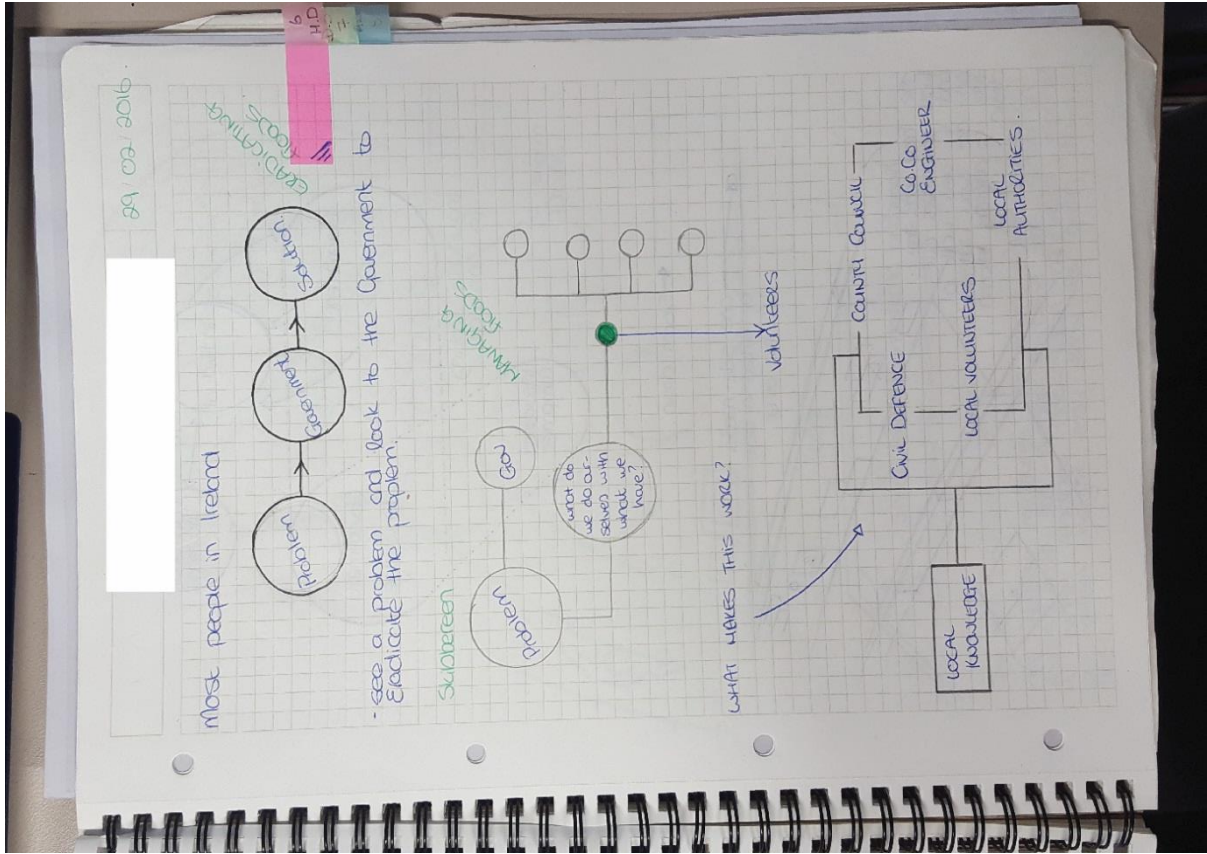 29/02/2016.
Most people in Ireland
Problem
Government
Solution.
ERADICATING
FLOODS
- see a problem and look to the Government to
Eradicate the problem.
Skibbereen
MANAGING
FLOODS
Problem
GOV
what do
we do our-
selves with
what we
have?
Volunteers
WHAT MAKES THIS WORK?
LOCAL
KNOWLEDGE
CIVIL DEFENCE
COUNTY COUNCIL
LOCAL VOLUNTEERS
CO.CO.
ENGINEER
LOCAL
AUTHORITIES.
6
H.D